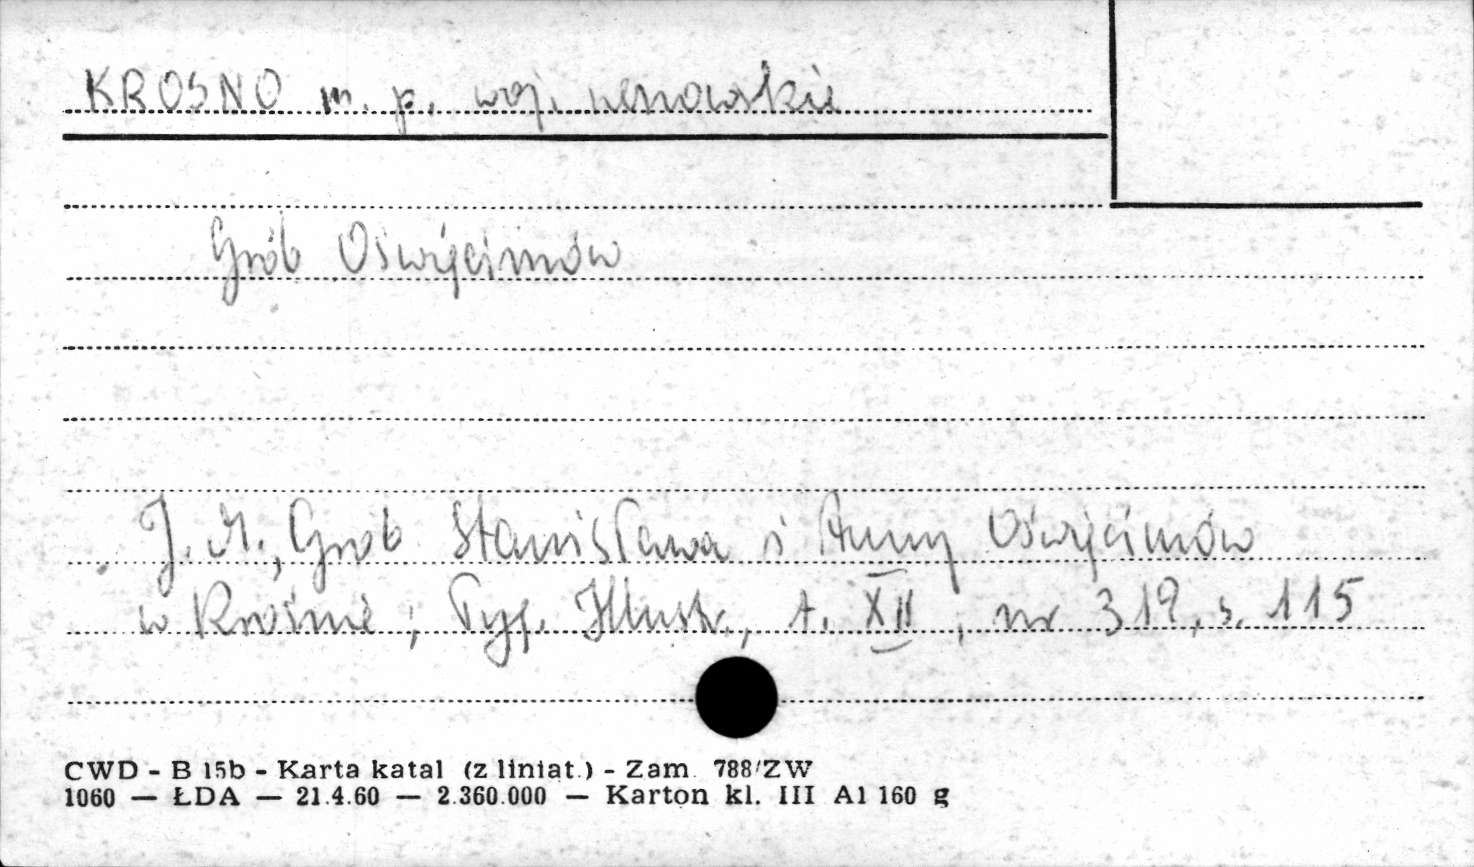 KROSNO m. p. woj. rzeszowskie
Grób Oświęcimów
J. M., Grób Stanisława i Anny Oświęcimów
w Krośnie; Tyg. Illustr., t. XII, nr 319, s. 115
CWD - B 15b - Karta katal (z liniat.) - Zam. 788/ZW
1060 — ŁDA — 21.4.60 — 2.360.000 — Karton kl. III A1 160 g